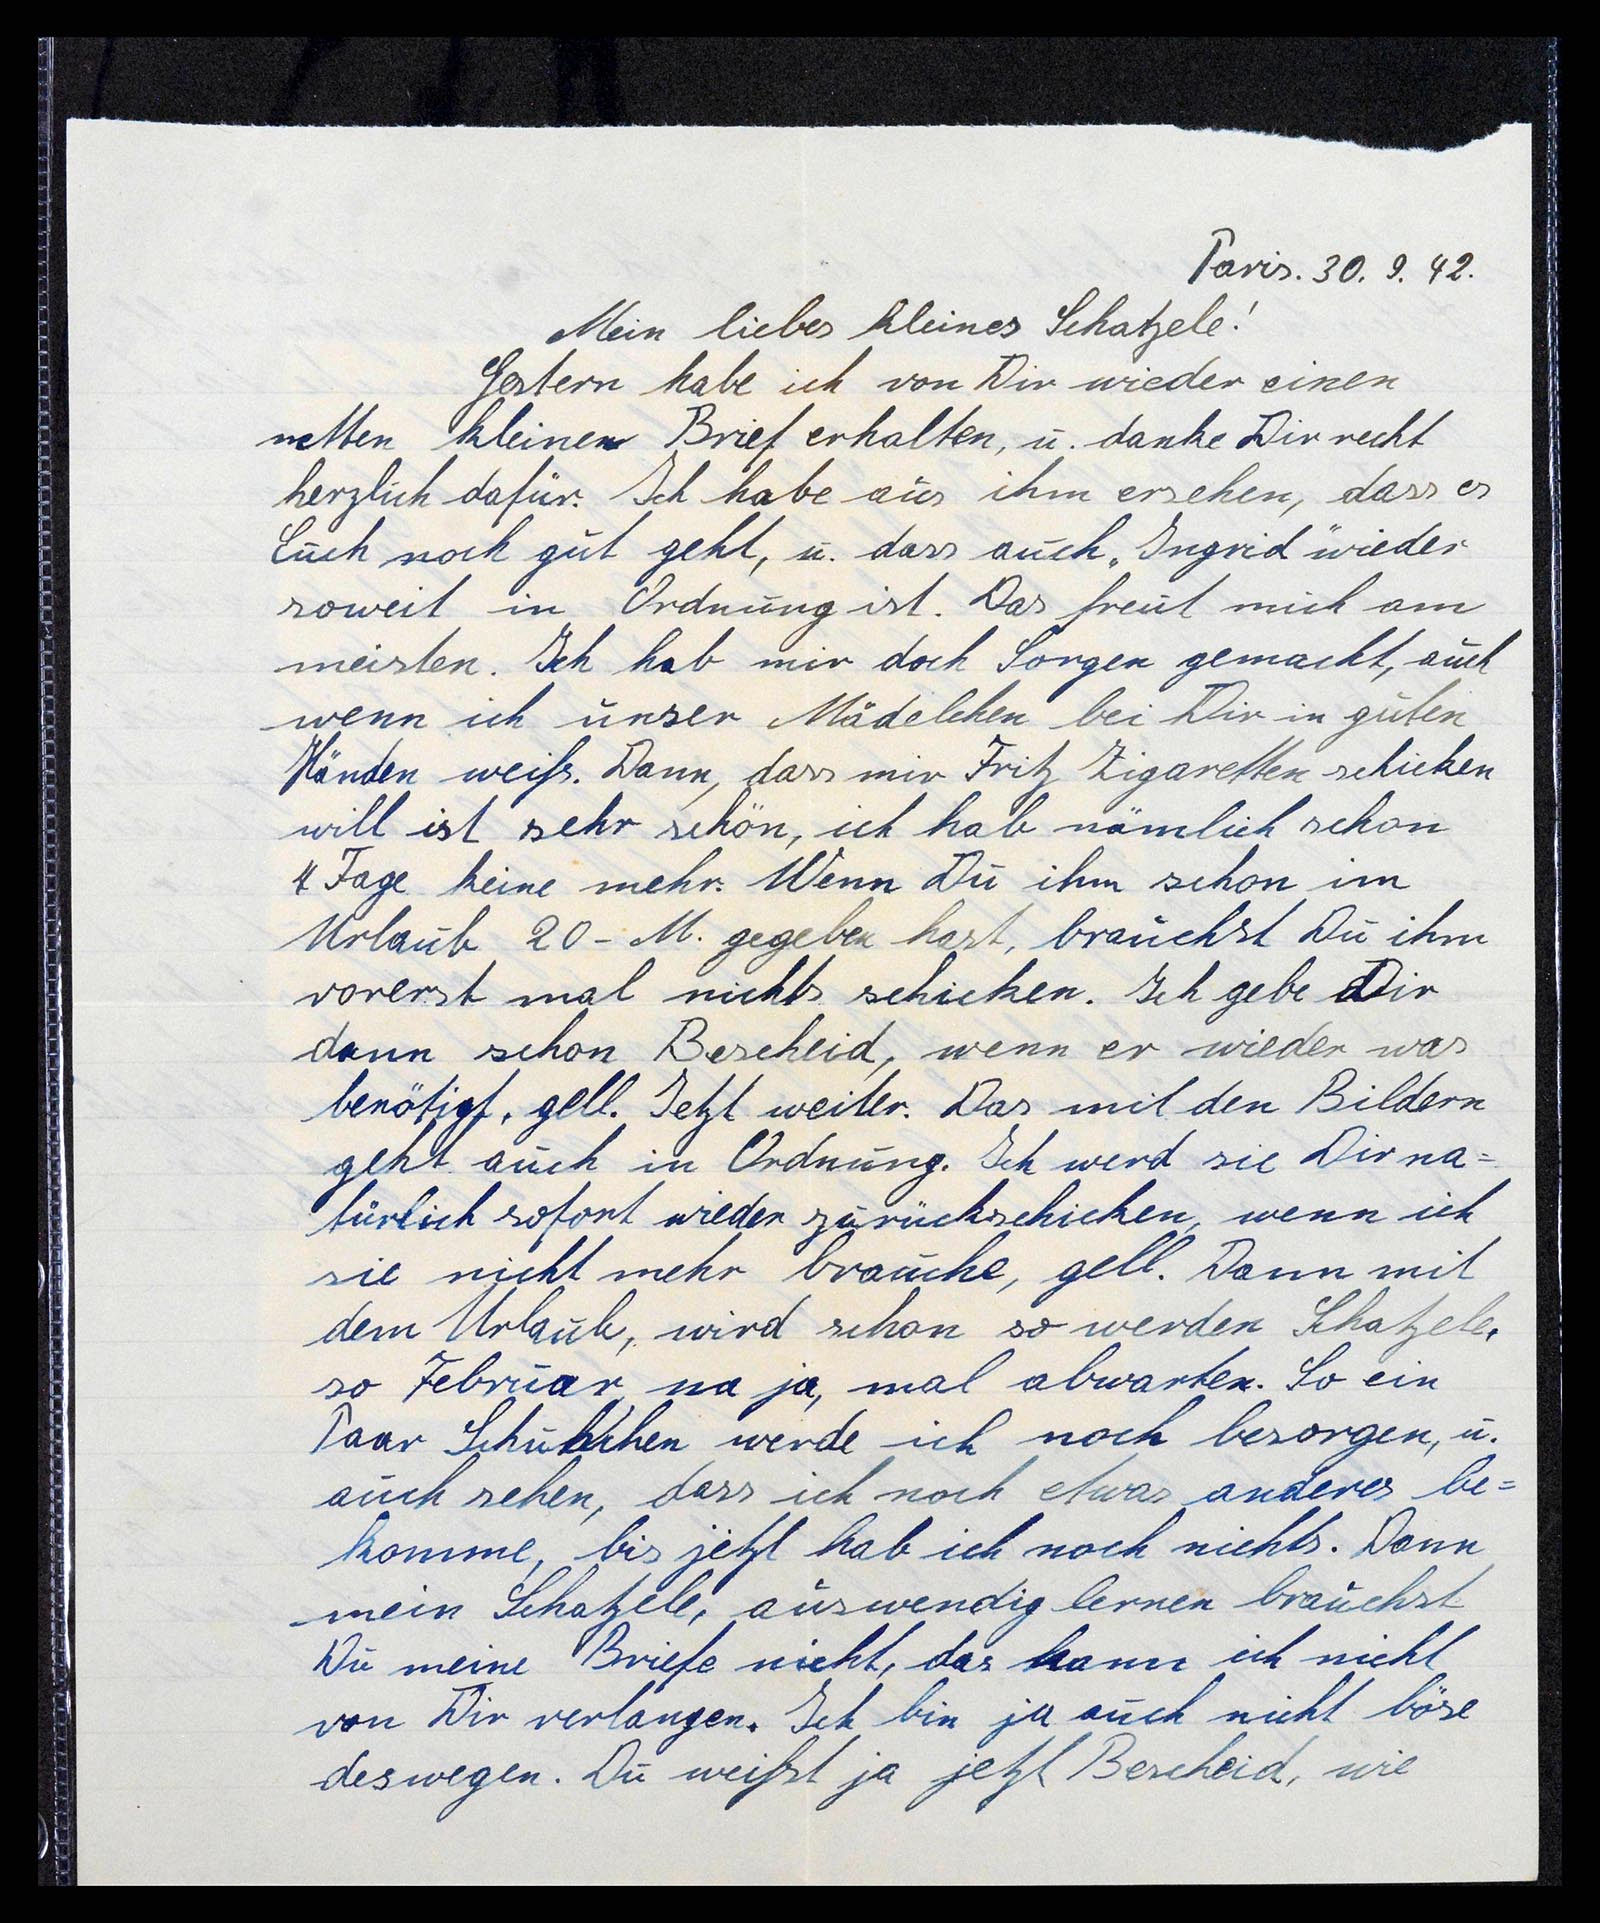 Paris. 30. 9. 42.
Mein liebes kleines Schatzele!
Gestern habe ich von Dir wieder einen
netten kleinen Brief erhalten, u. danke Dir recht
herzlich dafür. Ich habe aus ihm ersehen, dass es
Euch noch gut geht, u. dass auch „Ingrid" wieder
soweit in Ordnung ist. Das freut mich am
meisten. Ich hab mir doch Sorgen gemacht, auch
wenn ich unser Mädelchen bei Dir in guten
Händen weiß. Dann, dass mir Fritz Zigaretten schicken
will ist sehr schön, ich hab nämlich schon
4 Tage keine mehr. Wenn Du ihm schon im
Urlaub 20 - M. gegeben hast, brauchst Du ihm
vorerst mal nichts schicken. Ich gebe Dir
dann schon Bescheid, wenn er wieder was
benötigt, gell. Jetzt weiter. Das mit den Bildern
geht auch in Ordnung. Ich werd sie Dir na=
türlich sofort wieder zurückschicken, wenn ich
sie nicht mehr brauche, gell. Dann mit
dem Urlaub, wird schon so werden Schatzele,
so Februar, na ja, mal abwarten. So ein
Paar Schühchen werde ich noch besorgen, u.
auch sehen, dass ich noch etwas anderes be=
komme, bis jetzt hab ich noch nichts. Dann
mein Schatzele, auswendig lernen brauchst
Du meine Briefe nicht, das kann ich nicht
von Dir verlangen. Ich bin ja auch nicht böse
deswegen. Du weißt ja jetzt Bescheid, wie